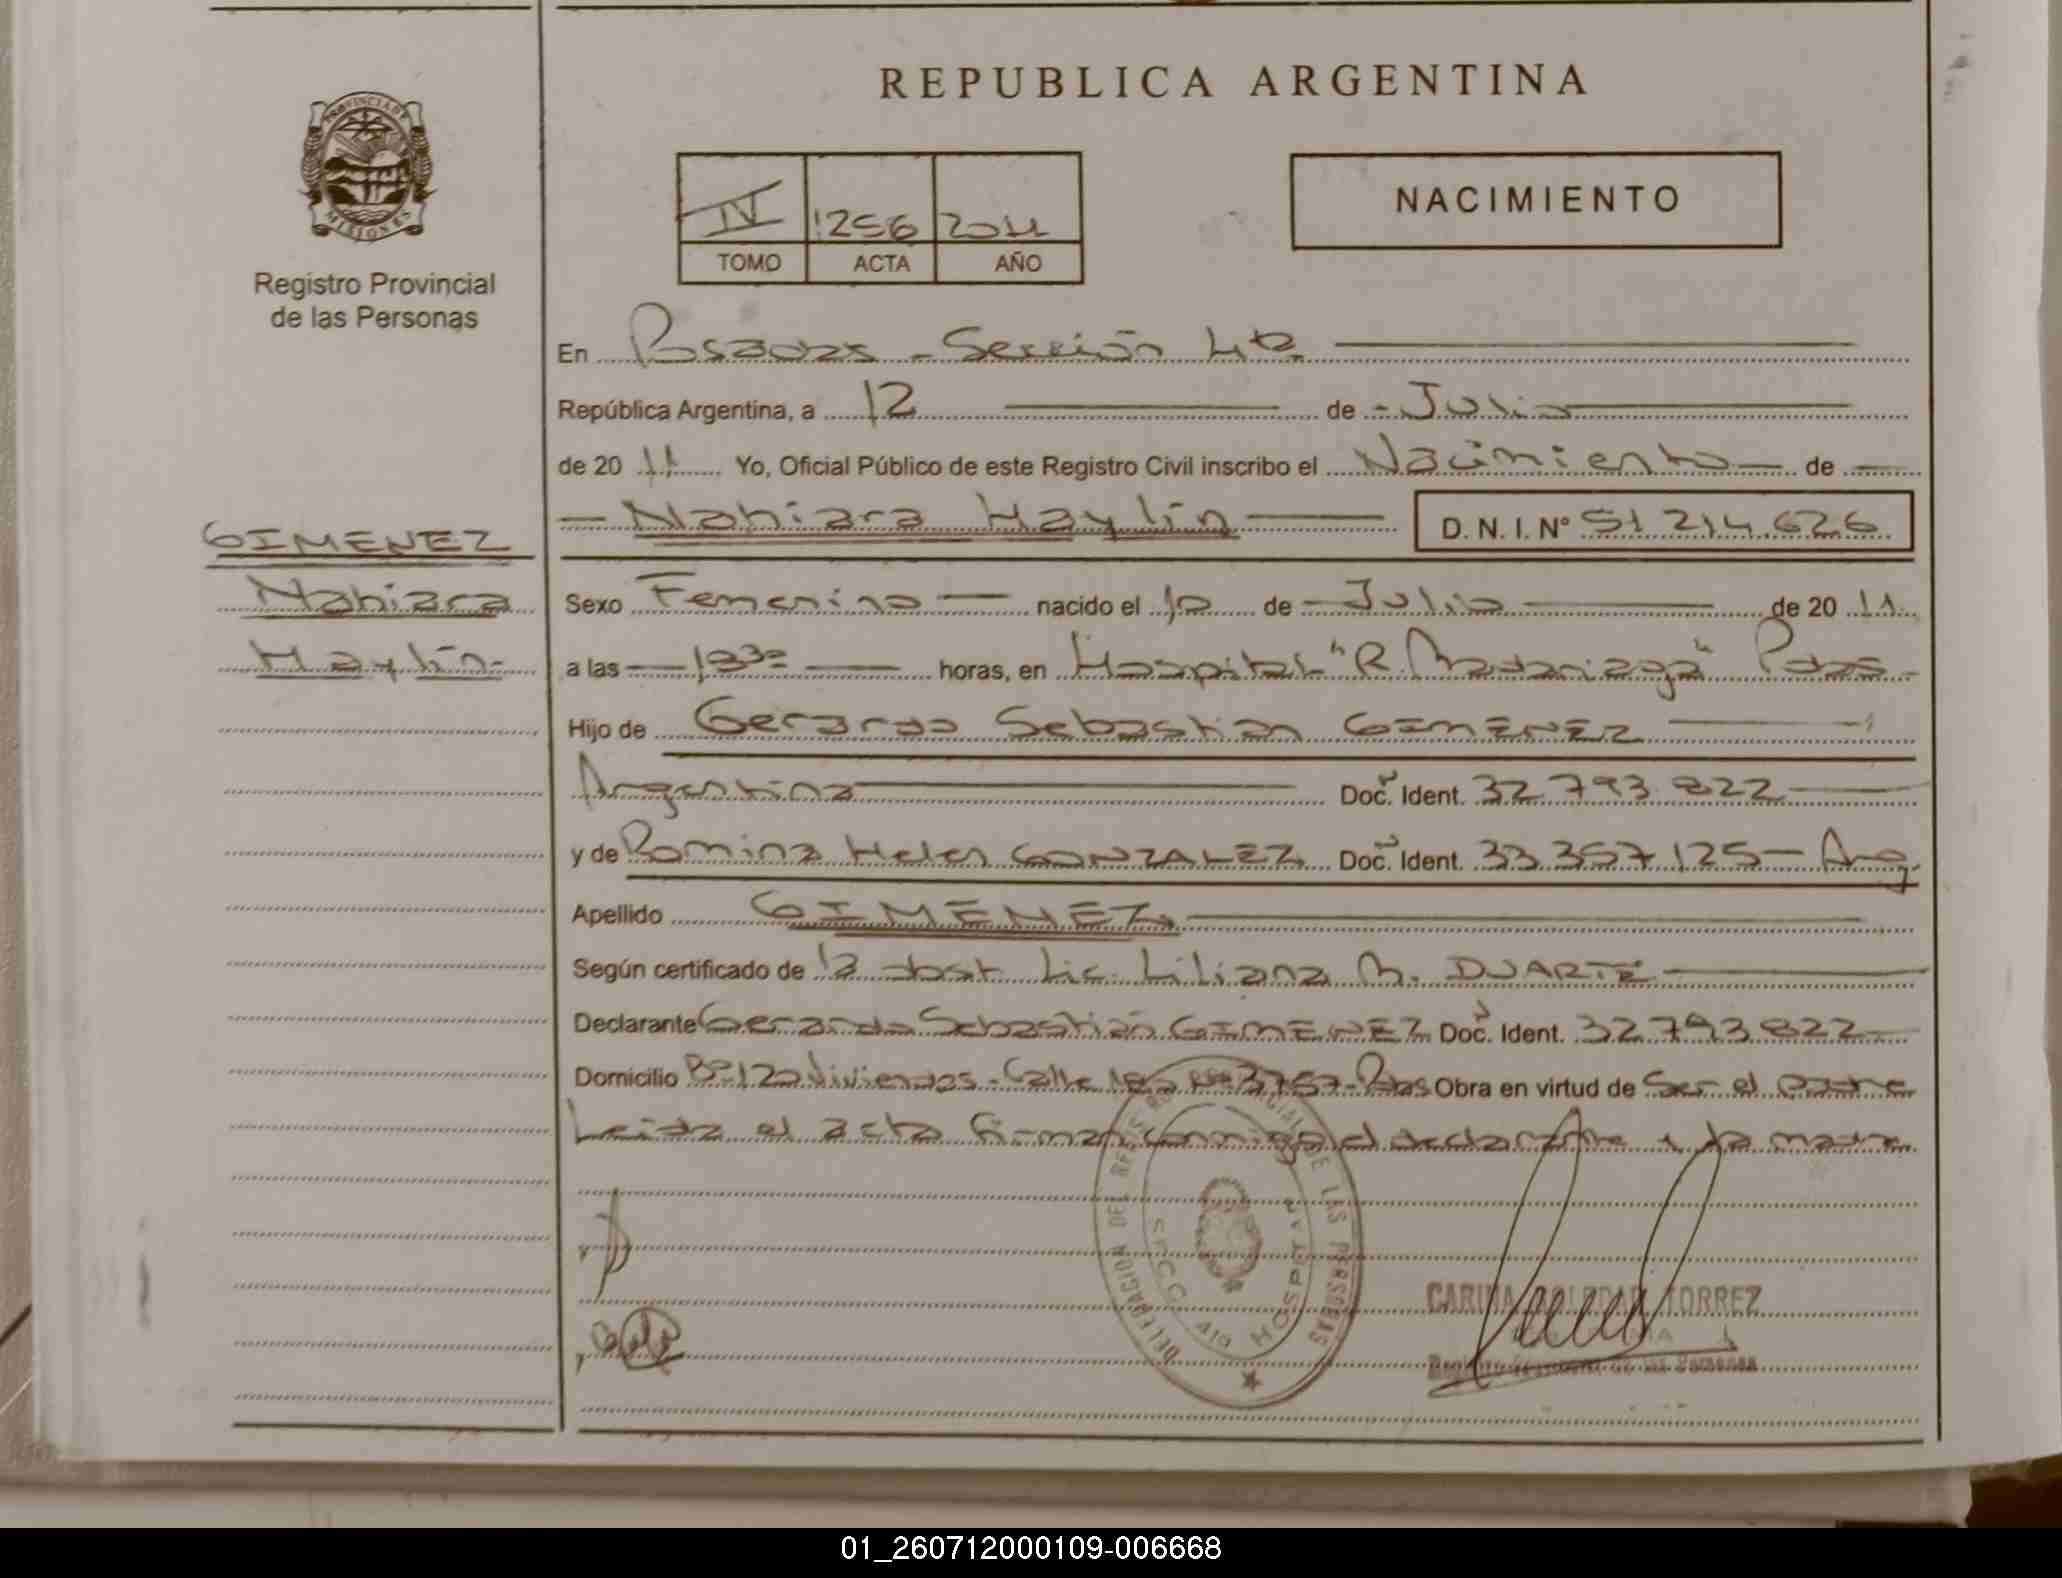 REPUBLICA ARGENTINA
PROVINCIA DE
MISIONES
Registro Provincial
de las Personas
IV 1256 2011
TOMO ACTA AÑO
NACIMIENTO
En Posadas - Sección 4ta
República Argentina, a 12 de Julio
de 20 11 Yo, Oficial Público de este Registro Civil inscribo el Nacimiento de
Nahiara Haylín D. N. I. Nº 51.214.626
GIMENEZ
Nahiara
Haylín
Sexo Femenino nacido el 10 de Julio de 20 11
a las horas, en Hospital "R. Madariaga" Pdas
Hijo de Gerardo Sebastian GIMENEZ
Argentina Doc. Ident. 32.793.822
y de Romina Helen GONZALEZ Doc. Ident. 33.357.125 - Arg.
Apellido GIMENEZ
Según certificado de la obst. Lic. Liliana M. DUARTE
Declarante Gerardo Sebastian GIMENEZ Doc. Ident. 32.793.822
Domicilio Bº 120 Viviendas - Calle 3757 - Pdas Obra en virtud de Ser el padre
Leida el acta firman conmigo el declarante y la madre
DELEGACION DEL REGISTRO PROVINCIAL DE LAS PERSONAS
HOSPITAL
CARINA SOLEDAD TORREZ
Registro Provincial de las Personas
01_260712000109-006668